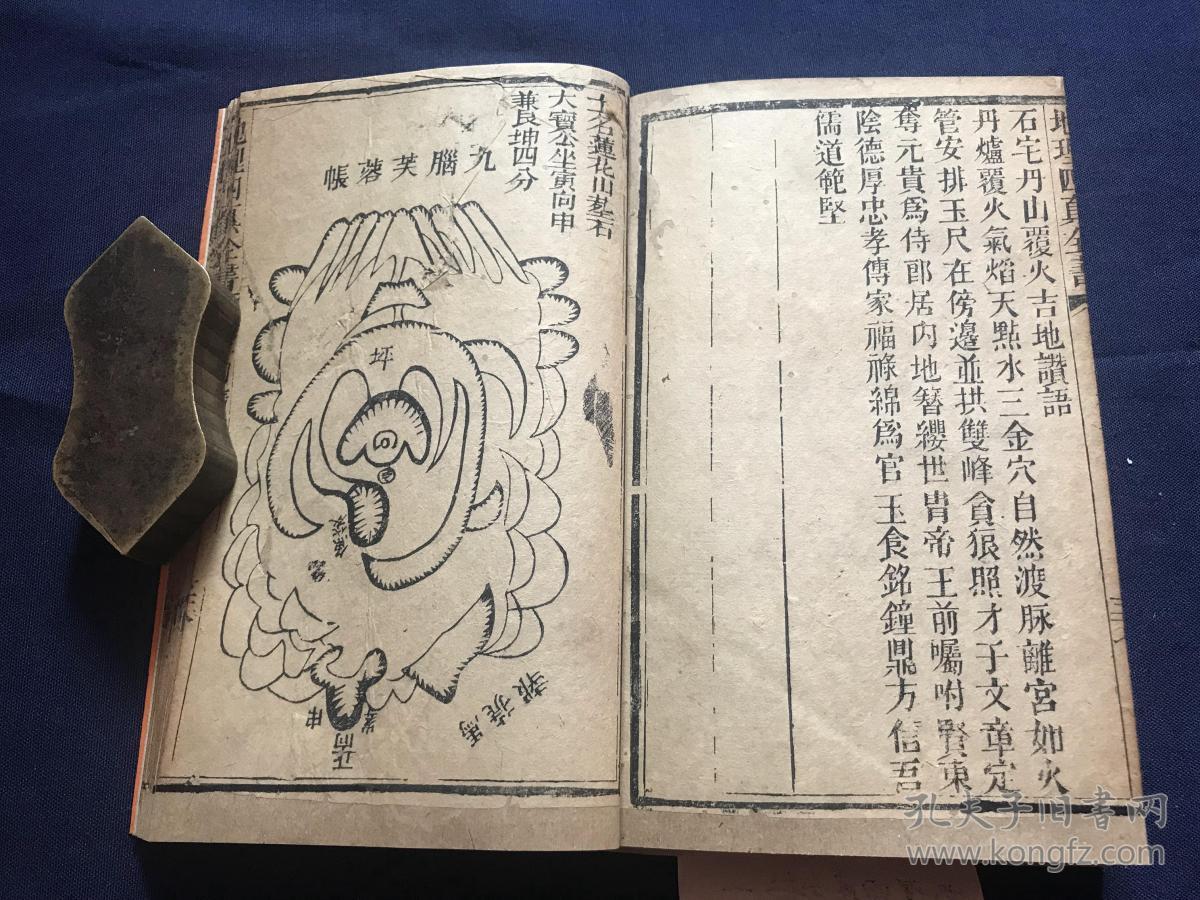 石宅丹山覆火吉地讚語
丹爐覆火氣焰天點水三金穴自然渡脉離宮如火
管安排玉尺在傍邊並拱雙峰貪狠照才子文章定
奪元貴爲侍郎居内地簪纓世胄帝王前囑咐賢東
陰德厚忠孝傳家福祿綿爲官玉食銘鐘鼎方信吾
儒道範堅
土名蓮花山墓石
大寳公坐寅向申
兼艮坤四分
九腦芙蓉帳
坪
申
孔夫子旧书网
www.kongfz.com